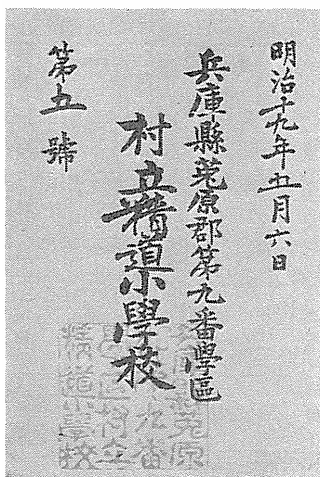 明治十九年五月六日
兵庫縣菟原郡第九番學區
村立精道小學校
第五號